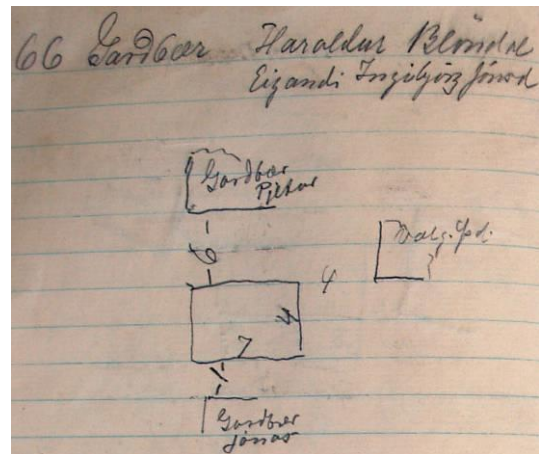 66 Garðbær Haraldur Blöndal
Eigandi Ingibjörg Jónsd
Garðbær
Pjetur
6
4
4
7
1
Garðbær
Jónas